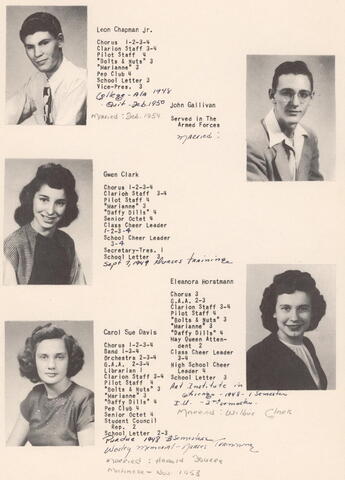 Leon Chapman Jr.
Chorus 1-2-3-4
Clarion Staff 3-4
Pilot Staff 4
"Bolts & Nuts" 3
"Marianne" 3
Pep Club 4
School Letter 3
Vice-Pres. 3
College - Ala 1948
Quit - Feb. 1950
Married: Feb. 1954
John Gallivan
Served in The
Armed Forces
Married:
Gwen Clark
Chorus 1-2-3-4
Clarion Staff 3-4
Pilot Staff 4
"Marianne" 3
"Daffy Dills" 4
Senior Octet 4
Class Cheer Leader
1-2-3-4
School Cheer Leader
3-4
Secretary-Tres. 1
School Letter 3
Sept 7, 1949 Nurses training
Eleanora Horstmann
Chorus 3
G.A.A. 2-3
Clarion Staff 3-4
Pilot Staff 4
"Bolts & Nuts" 3
"Marianne" 3
"Daffy Dills" 4
May Queen Atten-
dent 2
Class Cheer Leader
3-4
High School Cheer
Leader 4
School Letter 3
Art Institute in
Chicago - 1948 - 1 Semester
I.U. - 2nd Semester
Married: Wilbur Clark
Carol Sue Davis
Chorus 1-2-3-4
Band 1-3-4
Orchestra 2-3-4
G.A.A. 2-3-4
Librarian 1
Clarion Staff 3-4
Pilot Staff 4
"Bolts & Nuts" 3
"Marianne" 3
"Daffy Dills" 4
Pep Club 4
Senior Octet 4
Student Council
Rep. 2
School Letter 2-3
Purdue 1948 3 Semesters
Memorial - Nurses Training
Married: Harold
Nov. 1953